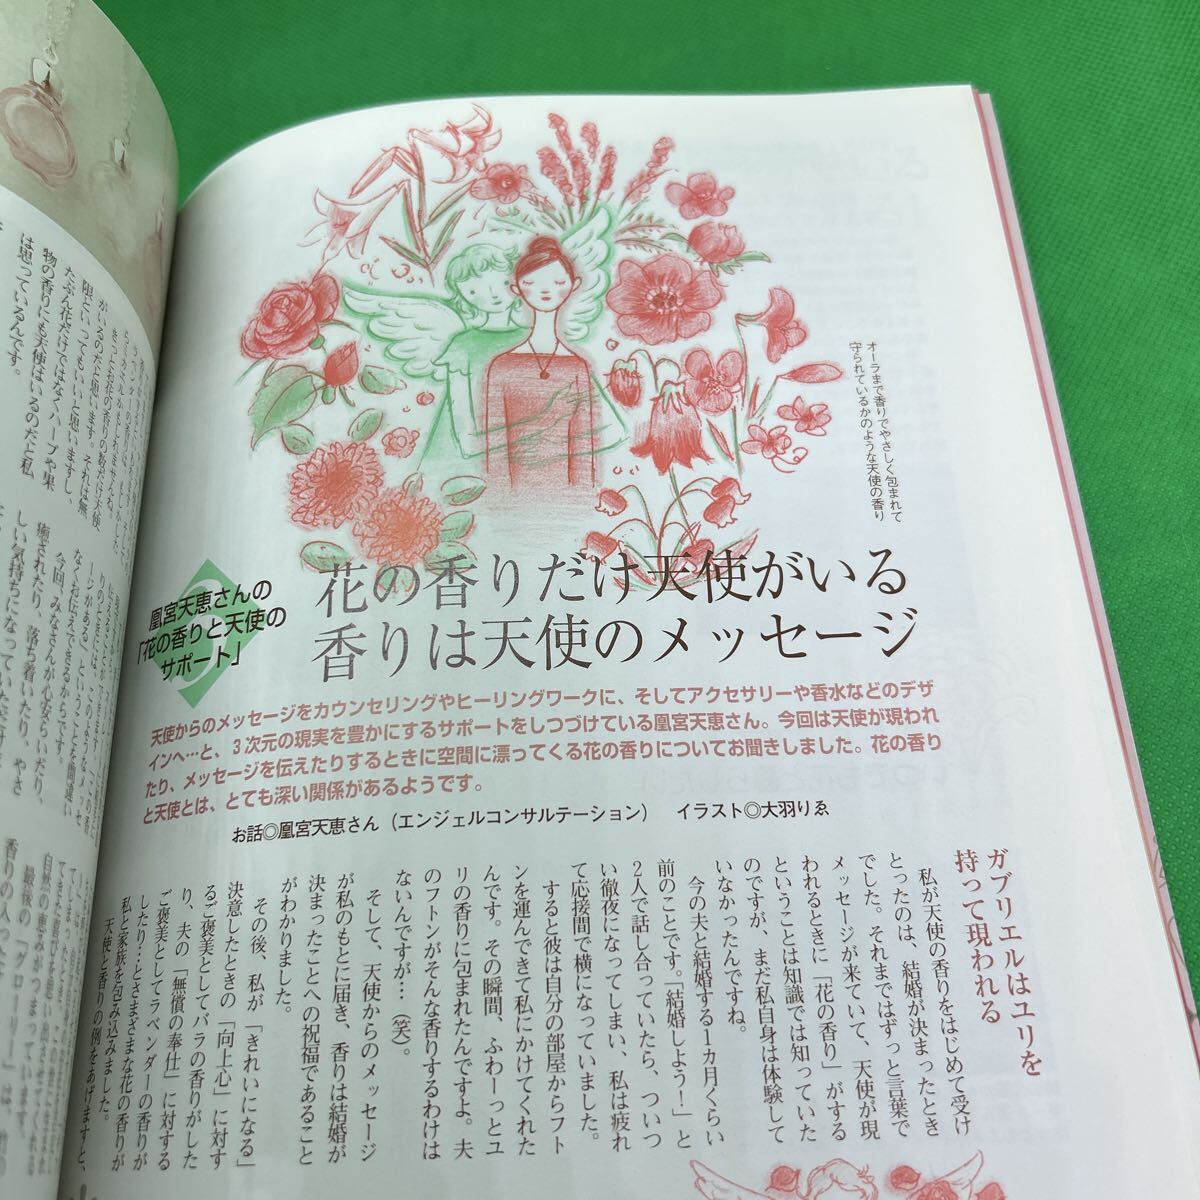 オーラまで香りでやさしく包まれて
守られているかのような天使の香り
花の香りだけ天使がいる
香りは天使のメッセージ
凰宮天恵さんの
「花の香りと天使の
サポート」
天使からのメッセージをカウンセリングやヒーリングワークに、そしてアクセサリーや香水などのデザ
インへ…と、3次元の現実を豊かにするサポートをしつづけている凰宮天恵さん。今回は天使が現われ
たり、メッセージを伝えたりするときに空間に漂ってくる花の香りについてお聞きしました。花の香り
と天使とは、とても深い関係があるようです。
お話◎凰宮天恵さん（エンジェルコンサルテーション）　イラスト◎大羽りゑ
ガブリエルはユリを
持って現われる
私が天使の香りをはじめて受け
とったのは、結婚が決まったとき
でした。それまではずっと言葉で
メッセージが来ていて、天使が現
われるときに「花の香り」がする
ということは知識では知っていた
のですが、まだ私自身は体験して
いなかったんですね。
今の夫と結婚する1カ月くらい
前のことです。「結婚しよう！」と
2人で話し合っていたら、ついつ
い徹夜になってしまい、私は疲れ
て応接間で横になっていました。
すると彼は自分の部屋からフト
ンを運んできて私にかけてくれた
んです。その瞬間、ふわーっとユ
リの香りに包まれたんですよ。夫
のフトンがそんな香りするわけは
ないんですが…（笑）。
そして、天使からのメッセージ
が私のもとに届き、香りは結婚が
決まったことへの祝福であること
がわかりました。
その後、私が「きれいになる」
決意したときの「向上心」に対す
るご褒美としてバラの香りがした
り、夫の「無償の奉仕」に対する
ご褒美としてラベンダーの香りが
したり…とさまざまな花の香りが
私と家族を包み込みました。
天使と香りの例をあげますと、
がいるのだと思います。それは無
限といってもいいと思いますし、
たぶん花だけではなくハーブや果
物の香りにも天使はいるのだと私
は思っているんです。
今回、みなさんが心安らいだり、
癒されたり、落ち着いたり、やさ
しい気持ちになっていただけ